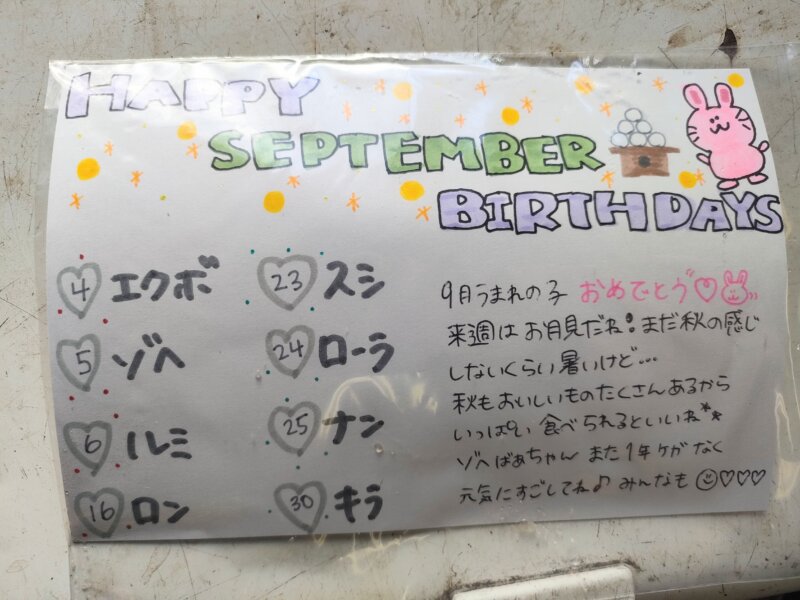 HAPPY
SEPTEMBER
BIRTHDAYS
4 エクボ
5 ゾヘ
6 ルミ
16 ロン
23 スシ
24 ローラ
25 ナン
30 キラ
9月うまれの子 おめでとう♡
来週は お月見だね! まだ秋の感じ
しないくらい 暑いけど...
秋も おいしいものたくさんあるから
いっぱい 食べられるといいね**
ゾヘばあちゃん また1年 ケガ なく
元気にすごしてね♪ みんなも ☺♡♡♡